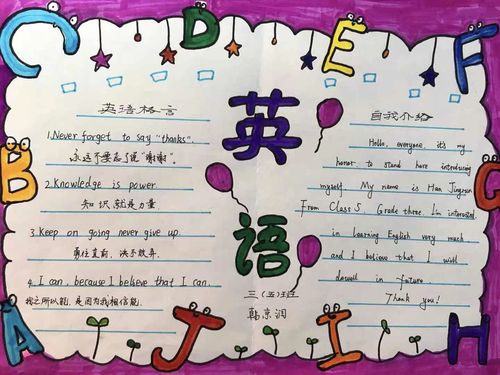 C D E F
英语格言
1.Never forget to say "thanks".
永远不要忘了说"谢谢".
2.Knowledge is power
知识就是力量
3.Keep on going never give up.
勇往直前, 决不放弃.
4.I can, because I believe that I can.
我之所以能, 是因为我相信能.
英
语
三(五)班
韩京润
自我介绍
Hello, everyone, it's my
honor to stand here introducing
myself. My name is Han Jingrun
From Class 5, Grade three I'm interested.
in Learning English very much
and I believe that I will
dowell in future.
Thank you!
B
G
A J I H